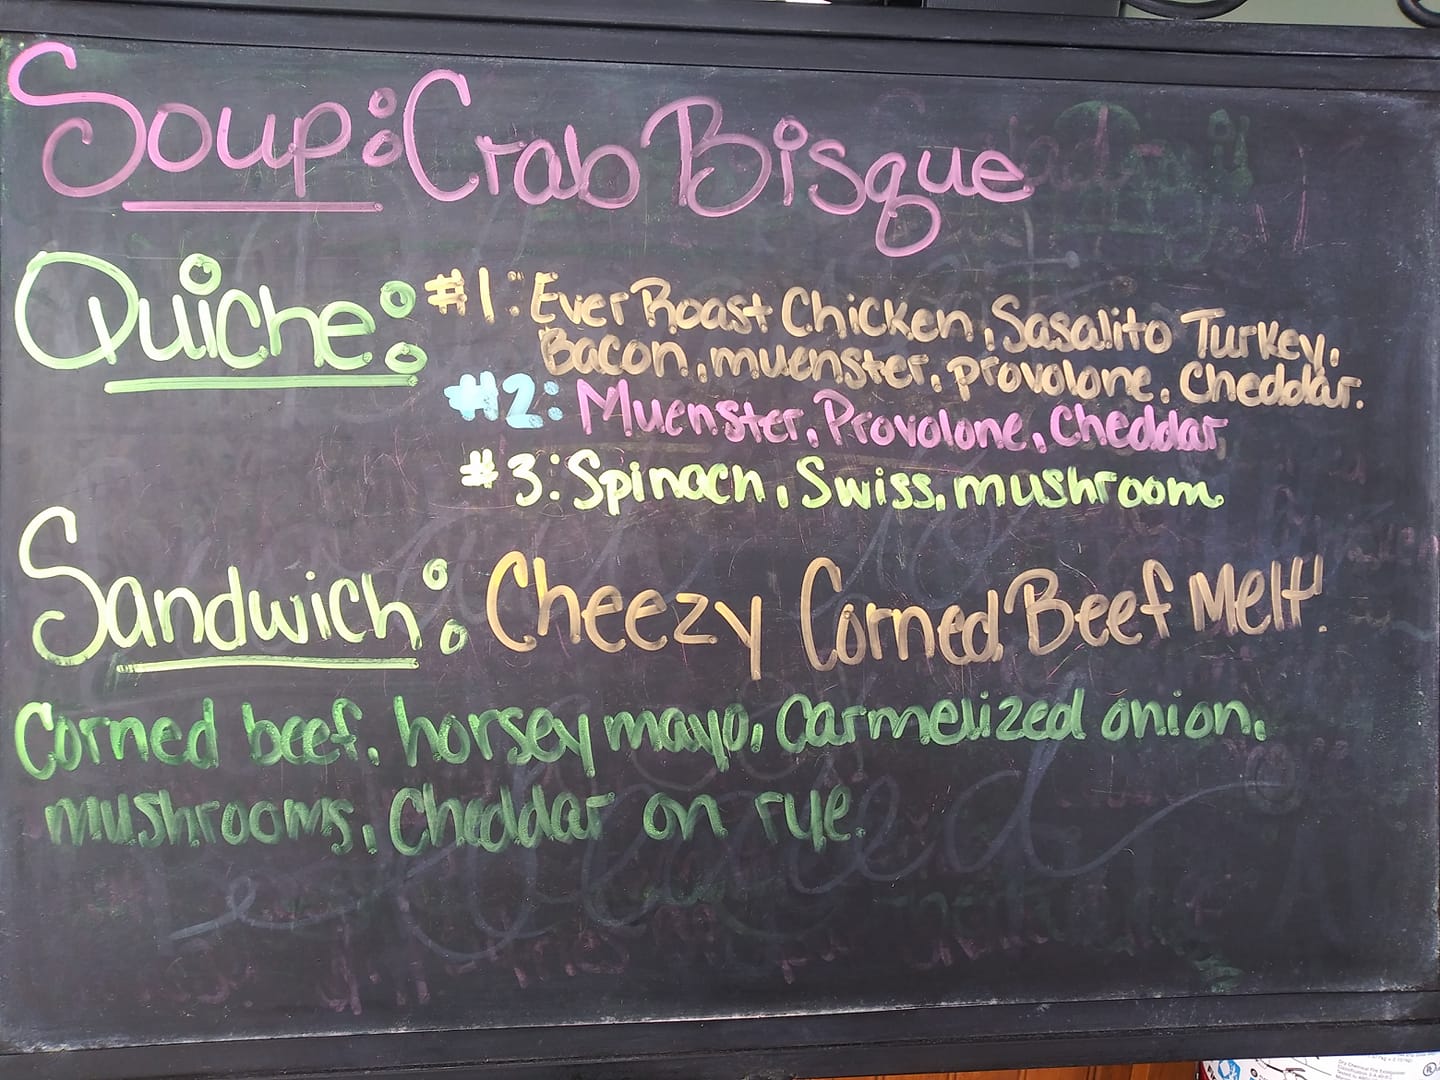 Soup: Crab Bisque
Quiche: #1: Ever Roast Chicken, Sasalito Turkey,
Bacon, muenster, provolone, Cheddar.
#2: Muenster, Provolone, Cheddar
#3: Spinach, Swiss, mushroom
Sandwich: Cheezy Corned Beef Melt!
Corned beef, horsey mayo, Carmelized onion,
mushrooms, Cheddar on rye.